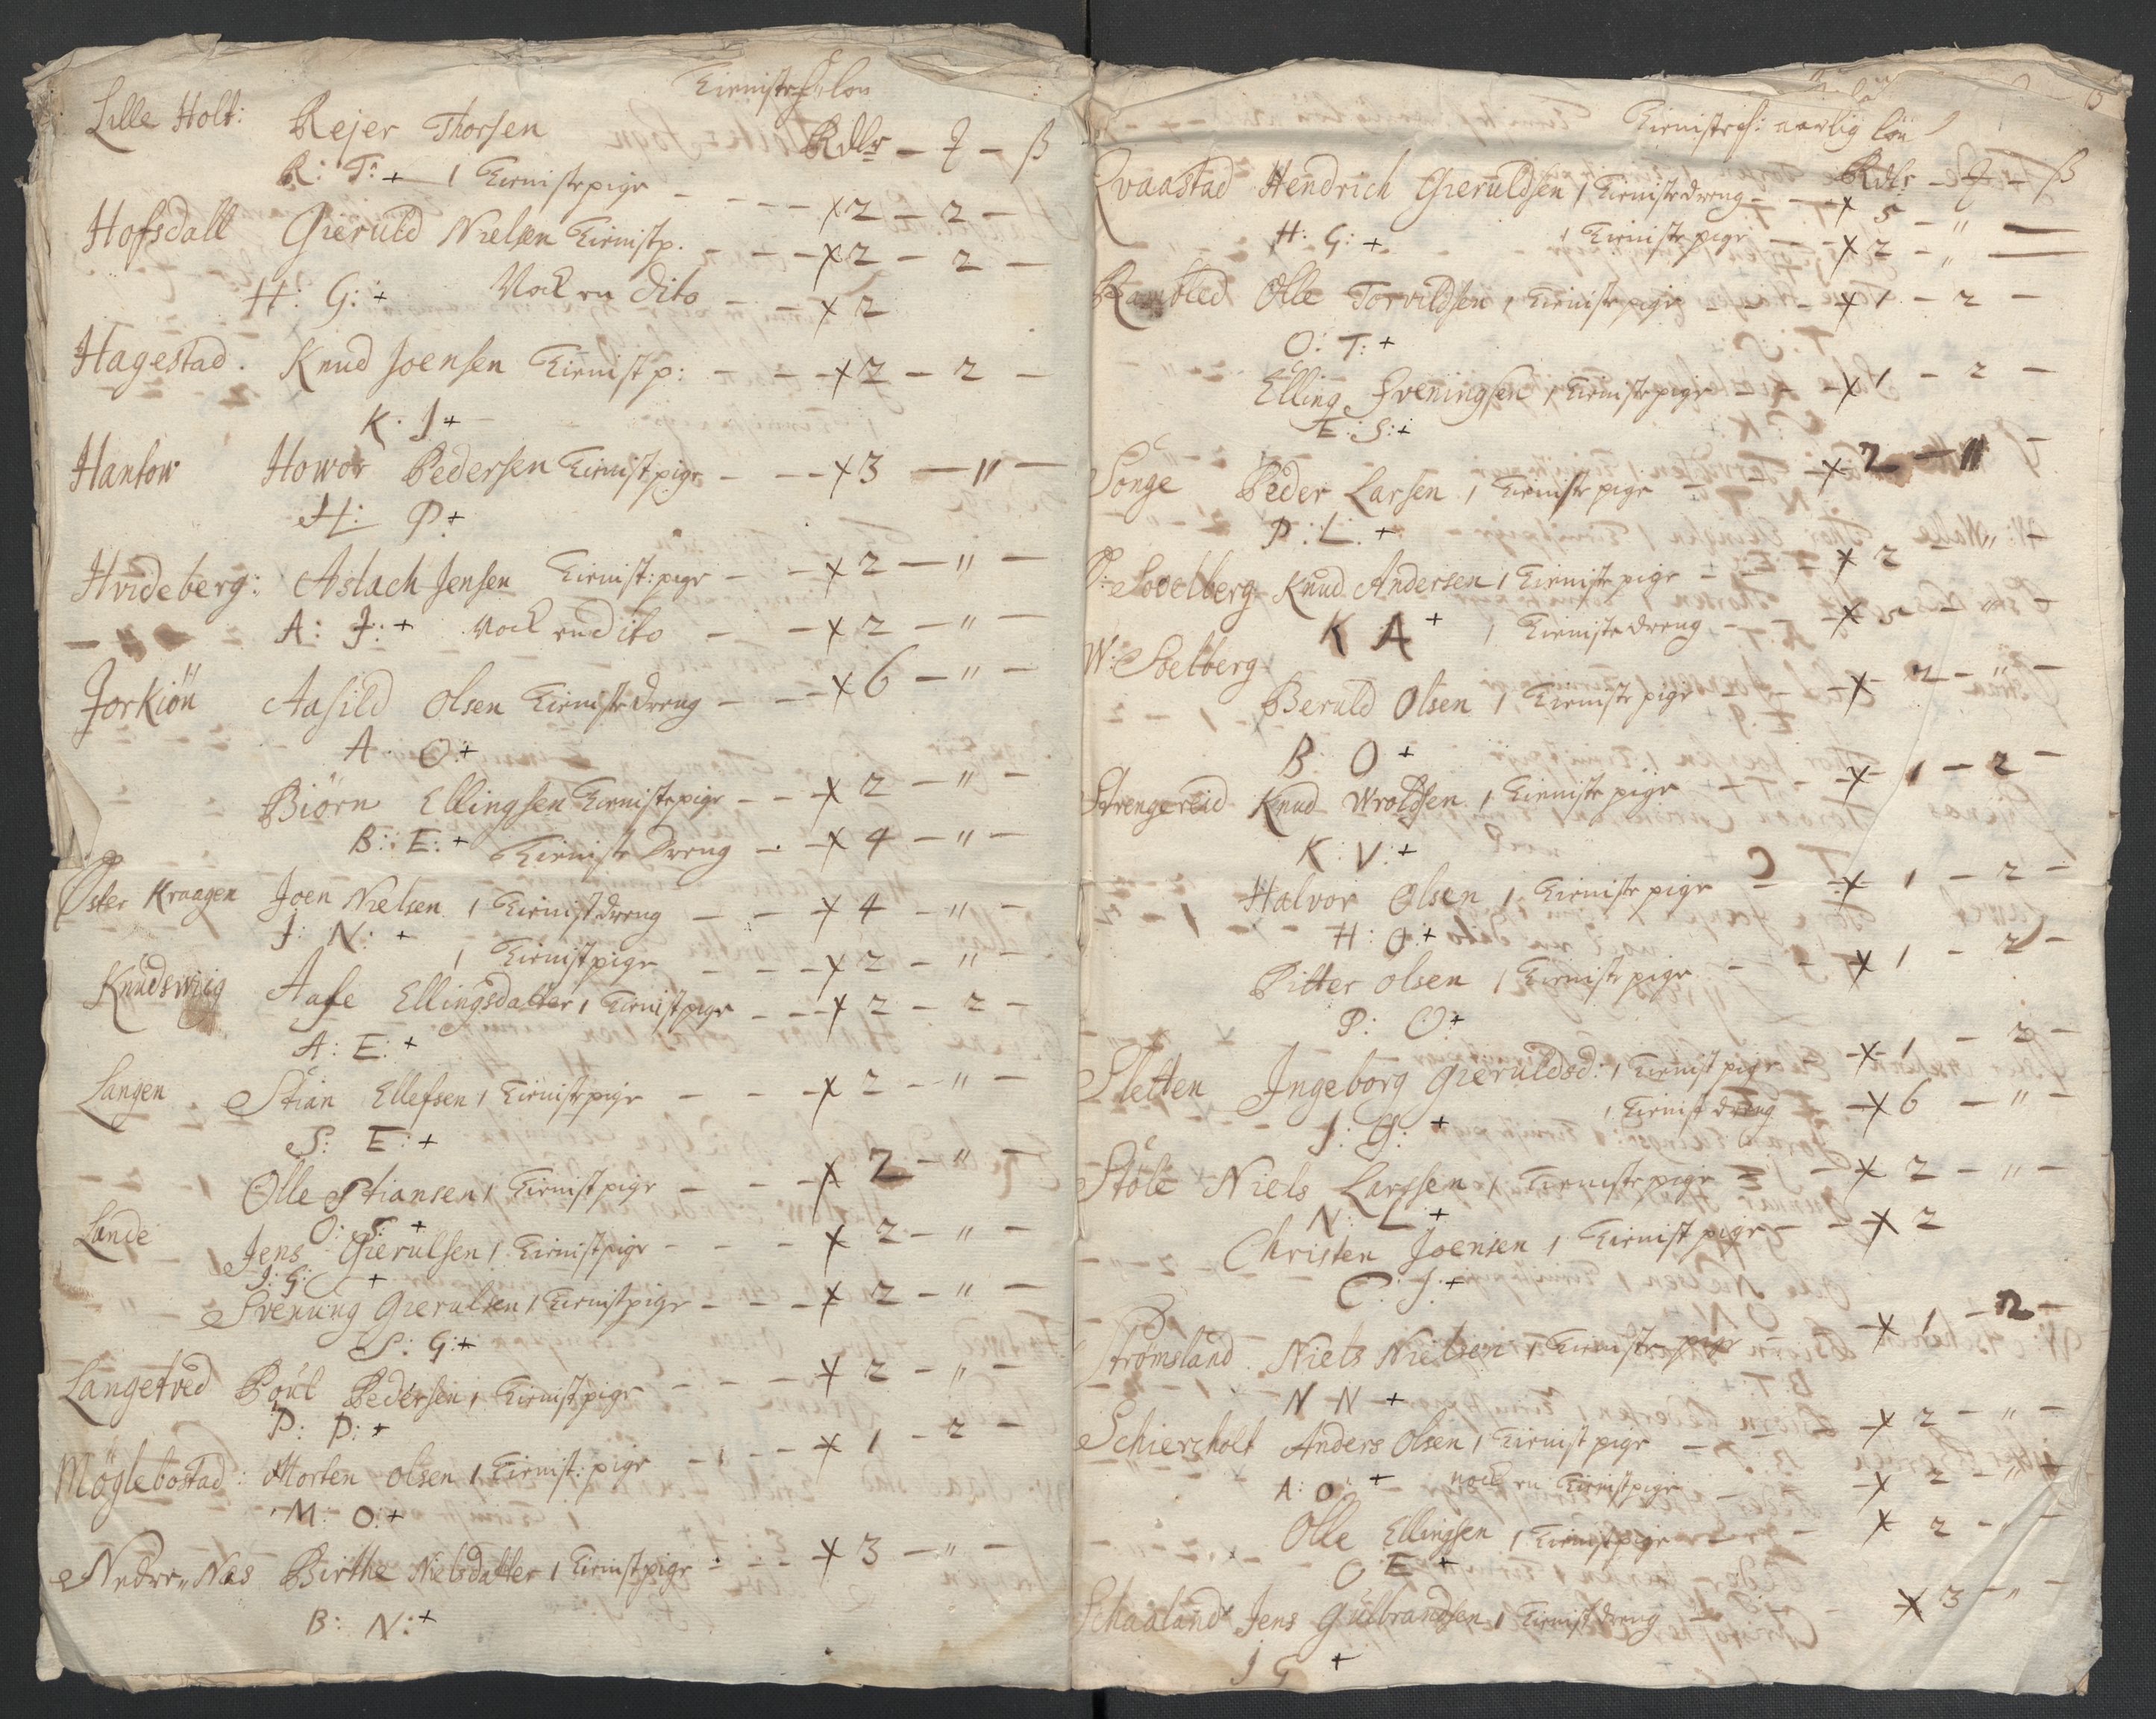 Tienistefol: lon
Lille Holt: Rejer Thorsen Rdlr - ʒ - ß
R: T: + 1 Tienistepige - - - - x 2 - 2 -
Hofsdall Gieruld Nielsen Tienistp. - - - x 2 - 2 -
H: G: + Nock en dito - - x 2
Hagestad. Knud Joensen Tienistp: - - - x 2 - 2 -
K. J +
Hantow Howor Pedersen Tienistpige - - - x 3 - " -
H: P +
Hvideberg: Aslach Jensen Tienist: pige - - x 2 - " -
A: J: + Nock en dito - - x 2 - " -
Jorkiön Aasild Olsen Tieniste dreng - - - x 6 - " -
A. O: +
Biörn Ellingsen Tienistepige - - - x 2 - " -
B: E: + Tieniste Dreng - - x 4 - " -
Öster Kraagen Joen Nielsen 1 Tienistdreng - - x 4 - " -
J: N: + 1 Tienistpige - - - x 2 - " -
Knudswiig Aase Ellingsdatter 1 Tienistpige - - - x 2 - 2 -
A: E: +
Langen Stian Ellefsen 1 Tienistepige - - - x 2 - " -
S: E: +
Olle Stiansen 1 Tienistpige - - - x 2 - " -
O: S: +
Lande Jens Gierulsen 1 Tienistpige - - - x 2 - " -
J: G: +
Svenung Gierulsen 1 Tienistpige - - - x 2 - " -
S: G: +
Langetved Poul Pedersen 1 Tienistpige - - - - x 2 - " -
P: P: +
Möglebostad: Morten Olsen 1 Tienist: pige - - - - x 1 - 2 -
M: O: +
Nedre Næs Birthe Nielsdatter 1 Tienistpige - - - x 3 - " -
B: N: +
Tienistefol: aarlig lön
Rdlr - ʒ - ß
Qvaastad Hendrich Gieruldsen 1 Tienistedreng - - x 5 - " -
H: G: + 1 Tienistepige - - x 2 - " -
Olle Torvildsen 1 Tienistepige - - - x 1 - 2 -
O: T: +
Elling Sveningsen 1 Tienistepige - - x 1 - 2 -
E: S: +
Songe Peder Larsen 1 Tieniste pige - - x 2 - " -
P: L: +
Ö: Soelberg Knud Andersen 1 Tieniste pige - - - x 2
K A + 1 Tieniste dreng - - x 5 - " -
W: Soelberg
Beruld Olsen 1 Tieniste pige - - - x 2 - " -
B: O +
Strengereid Knud Wroldsen 1 Tieniste pige - - - x 1 - 2 -
K: V: +
Halvor Olsen 1 Tieniste pige - - x 1 - 2 -
H: O: +
Pitter Olsen 1 Tieniste pige - - x 1 - 2 -
P: O: +
Sletten Ingeborg Gieruldsd: 1 Tienist pige - x 1 - 2 -
1 Tienist dreng - x 6 - " -
J: G: +
Stöle Niels Larssen 1 Tieniste pige - - x 2 - " -
N: L: +
Christen Joensen 1 Tienist pige - - x 2
C: J: +
Strömsland Niels Nielsen 1 Tieniste pige x 1 - 2 -
N N +
Schiercholt Anders Olsen 1 Tienist pige - - x 2 - " -
A: O: + nock en Tienistpige - - x 2 - " -
Olle Ellingsen 1 Tienistpige - - x 2 - " -
O E +
Schaaland Jens Gulbrandsen 1 Tienistdreng - x 3 - " -
J G +